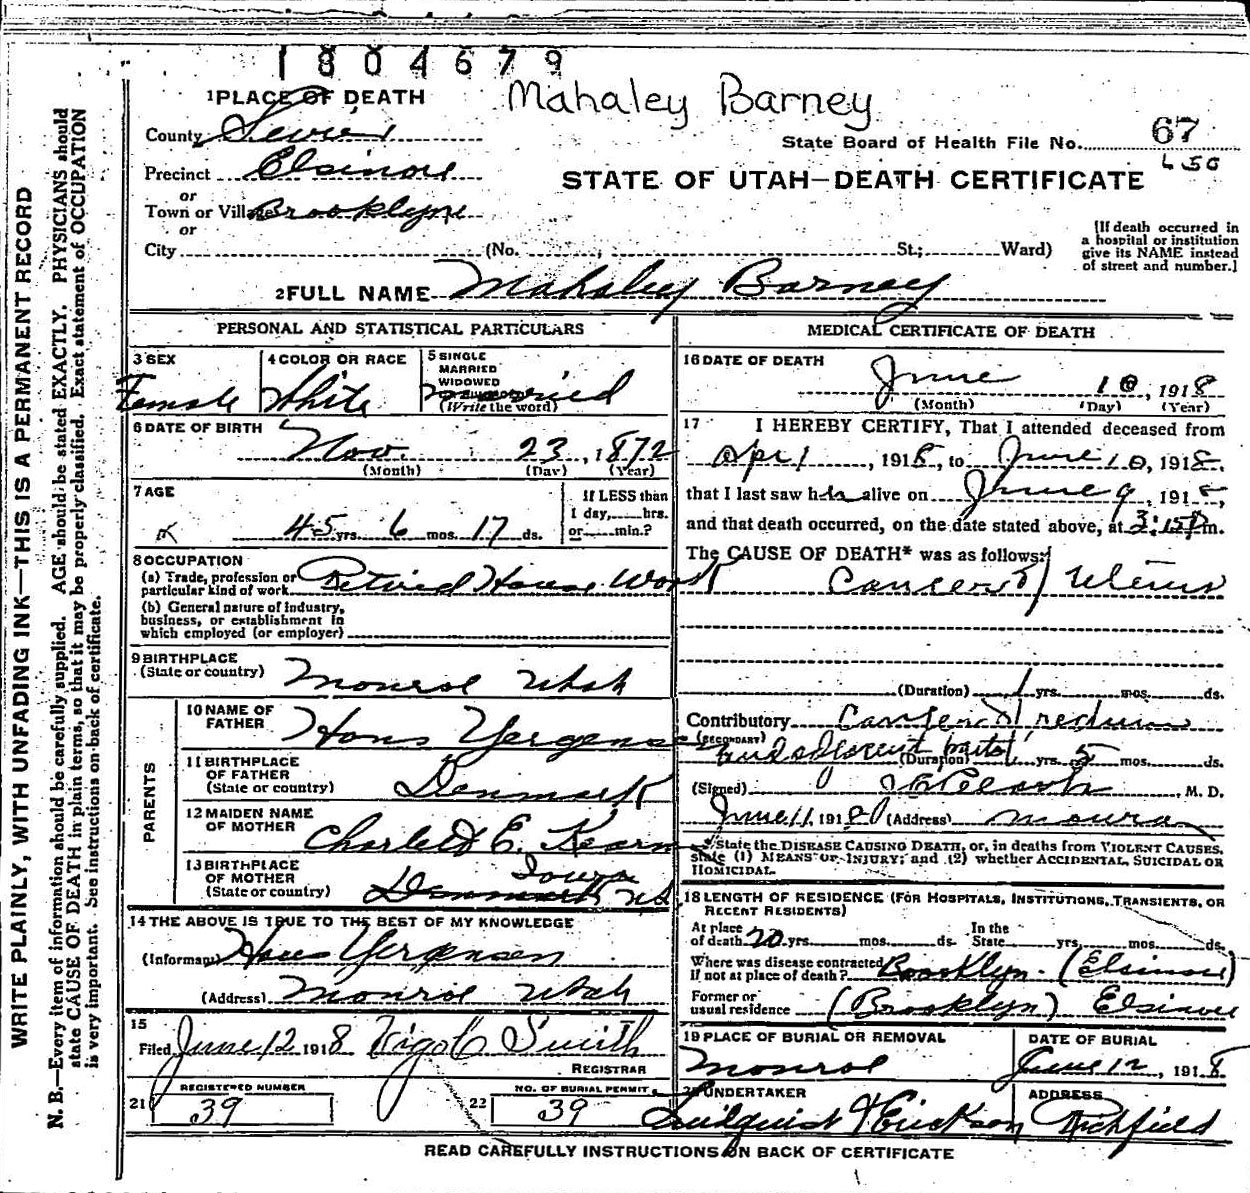 1804679
1 PLACE OF DEATH
Mahaley Barney
County Sevier
State Board of Health File No. 67
Precinct Elsinore
L50
or
STATE OF UTAH—DEATH CERTIFICATE
Town or Village Brooklyne
or
City (No. St.; Ward)
[If death occurred in
a hospital or institution
give its NAME instead
of street and number.]
2 FULL NAME Mahaley Barney
PERSONAL AND STATISTICAL PARTICULARS
3 SEX
Female
4 COLOR OR RACE
White
5 SINGLE
MARRIED
WIDOWED
married
(Write the word)
6 DATE OF BIRTH
Nov. 23, 1872
(Month) (Day) (Year)
7 AGE
45 yrs. 6 mos. 17 ds.
If LESS than
1 day, hrs.
or min.?
8 OCCUPATION
(a) Trade, profession or
particular kind of work Retired House Work
(b) General nature of industry,
business, or establishment in
which employed (or employer)
9 BIRTHPLACE
(State or country)
Monroe Utah
PARENTS
10 NAME OF
FATHER
Hans Yergens
11 BIRTHPLACE
OF FATHER
(State or country)
Denmark
12 MAIDEN NAME
OF MOTHER
E. Kearn
13 BIRTHPLACE
OF MOTHER
(State or country)
Iowa
Denmark
14 THE ABOVE IS TRUE TO THE BEST OF MY KNOWLEDGE
(Informant) Hans Yergensen
(Address) Monroe Utah
15
Filed June 12 1918 Smith
REGISTRAR
REGISTERED NUMBER
21 39
NO. OF BURIAL PERMIT
22 39
MEDICAL CERTIFICATE OF DEATH
16 DATE OF DEATH
June 10, 1918
(Month) (Day) (Year)
17 I HEREBY CERTIFY, That I attended deceased from
Apr 1, 1918, to June 10, 1918.
that I last saw her alive on June 9, 1918,
and that death occurred, on the date stated above, at 3:15 P m.
The CAUSE OF DEATH* was as follows:
Cancer of Uterus
(Duration) 1 yrs. mos. ds.
Contributory Cancer of rectum
(SECONDARY)
and adjacent parts
(Duration) yrs. 5 mos. ds.
(Signed) M. D.
June 11, 1918 (Address) Monroe
* State the DISEASE CAUSING DEATH, or, in deaths from VIOLENT CAUSES,
state (1) MEANS OF INJURY; and (2) whether ACCIDENTAL, SUICIDAL OR
HOMICIDAL.
18 LENGTH OF RESIDENCE (FOR HOSPITALS, INSTITUTIONS, TRANSIENTS, OR
RECENT RESIDENTS)
At place
of death 20 yrs. mos. ds.
In the
State yrs. mos. ds.
Where was disease contracted
if not at place of death? Brooklyn. (Elsinore)
Former or
usual residence (Brooklyn) Elsinore
19 PLACE OF BURIAL OR REMOVAL
Monroe
DATE OF BURIAL
June 12, 1918
UNDERTAKER
Lindquist & Erickson
ADDRESS
Richfield
READ CAREFULLY INSTRUCTIONS ON BACK OF CERTIFICATE
WRITE PLAINLY, WITH UNFADING INK—THIS IS A PERMANENT RECORD
N. B.—Every item of information should be carefully supplied. AGE should be stated EXACTLY. PHYSICIANS should
state CAUSE OF DEATH in plain terms, so that it may be properly classified. Exact statement of OCCUPATION
is very important. See instructions on back of certificate.